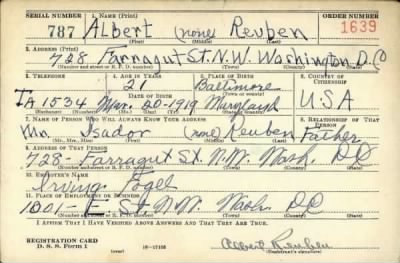 SERIAL NUMBER 1. NAME (Print) ORDER NUMBER
787 Albert (none) Reuben 1639
(First) (Middle) (Last)
2. ADDRESS (Print)
728 Farragut St. N.W. Washington D.C
(Number and street or R. F. D. number) (Town) (County) (State)
3. TELEPHONE 4. AGE IN YEARS 5. PLACE OF BIRTH 6. COUNTRY OF CITIZENSHIP
21 Baltimore
DATE OF BIRTH (Town or county)
TA 1534 Mar. 20-1919 Maryland USA
(Exchange) (Number) (Mo.) (Day) (Yr.) (State or country)
7. NAME OF PERSON WHO WILL ALWAYS KNOW YOUR ADDRESS 8. RELATIONSHIP OF THAT PERSON
Mr. Isador (none) Reuben Father
(Mr., Mrs., Miss) (First) (Middle) (Last)
9. ADDRESS OF THAT PERSON
728- Farragut St. N.W. Wash. DC
(Number and street or R. F. D. number) (Town) (County) (State)
10. EMPLOYER'S NAME
Irving Fogel
11. PLACE OF EMPLOYMENT OR BUSINESS
1001- E. St N.W. Wash. DC
(Number and street or R. F. D. number) (Town) (County) (State)
I AFFIRM THAT I HAVE VERIFIED ABOVE ANSWERS AND THAT THEY ARE TRUE.
REGISTRATION CARD
D. S. S. Form 1 (over) 16-17105 Albert Reuben
(Registrant's signature)